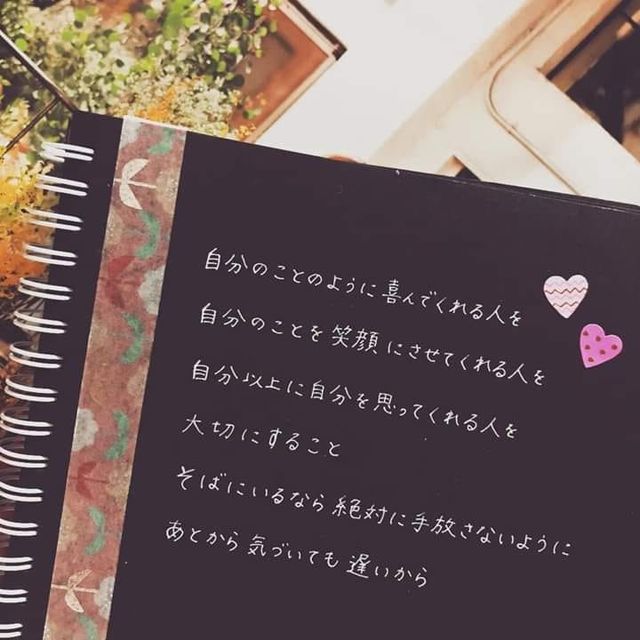 自分のことのように喜んでくれる人を
自分のことを笑顔にさせてくれる人を
自分以上に自分を思ってくれる人を
大切にすること
そばにいるなら絶対に手放さないように
あとから気づいても遅いから